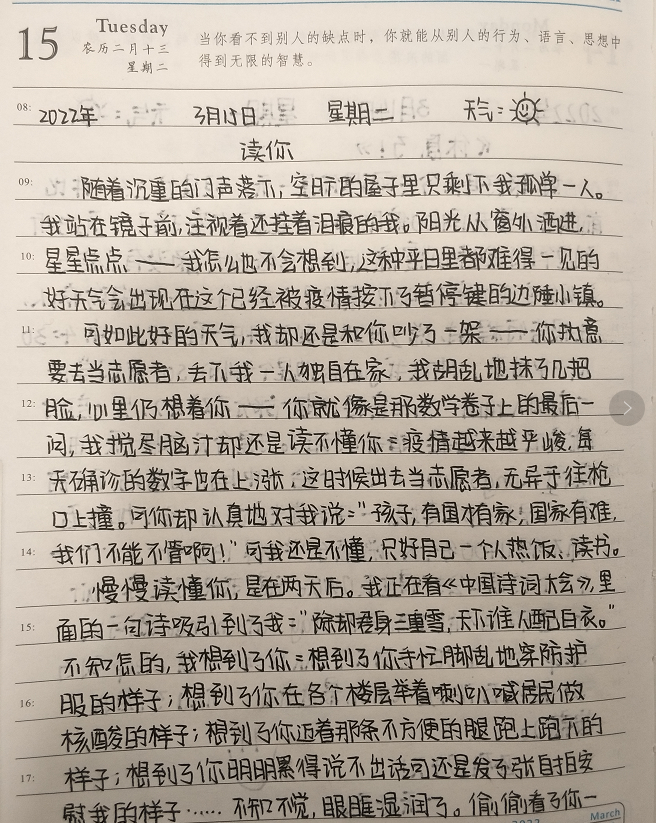 15
Tuesday
农历二月十三
星期二
当你看不到别人的缺点时，你就能从别人的行为、语言、思想中
得到无限的智慧。
08: 2022年 3月15日 星期二 天气:
读你
09: 随着沉重的门声落下，空旷的屋子里只剩下我孤单一人。
我站在镜子前，注视着还挂着泪痕的我。阳光从窗外洒进，
10: 星星点点——我怎么也不会想到，这种平日里都难得一见的
好天气会出现在这个已经被疫情按下了暂停键的边陲小镇。
11: 可如此好的天气，我却还是和你吵了一架——你执意
要去当志愿者，丢下我一人独自在家，我胡乱地抹了几把
12: 脸，心里仍想着你——你就像是那数学卷子上的最后一
问，我搅尽脑汁却还是读不懂你：疫情越来越严峻，每
13: 天确诊的数字也在上涨，这时候出去当志愿者，无异于往枪
口上撞。可你却认真地对我说：“孩子，有国才有家；国家有难，
14: 我们不能不管啊！”可我还是不懂，只好自己一个人热饭、读书。
慢慢读懂你，是在两天后。我正在看《中国诗词大会》，里
15: 面的一句诗吸引到了我：“除却君身三重雪，天下谁人配白衣。”
不知怎的，我想到了你：想到了你手忙脚乱地穿防护
16: 服的样子；想到了你在各个楼层举着喇叭喊居民做
核酸的样子；想到了你迈着那条不方便的腿跑上跑下的
17: 样子；想到了你明明累得说不出话可还是发了张自拍安
慰我的样子……不知不觉，眼眶湿润了。偷偷看了你一
March
2022